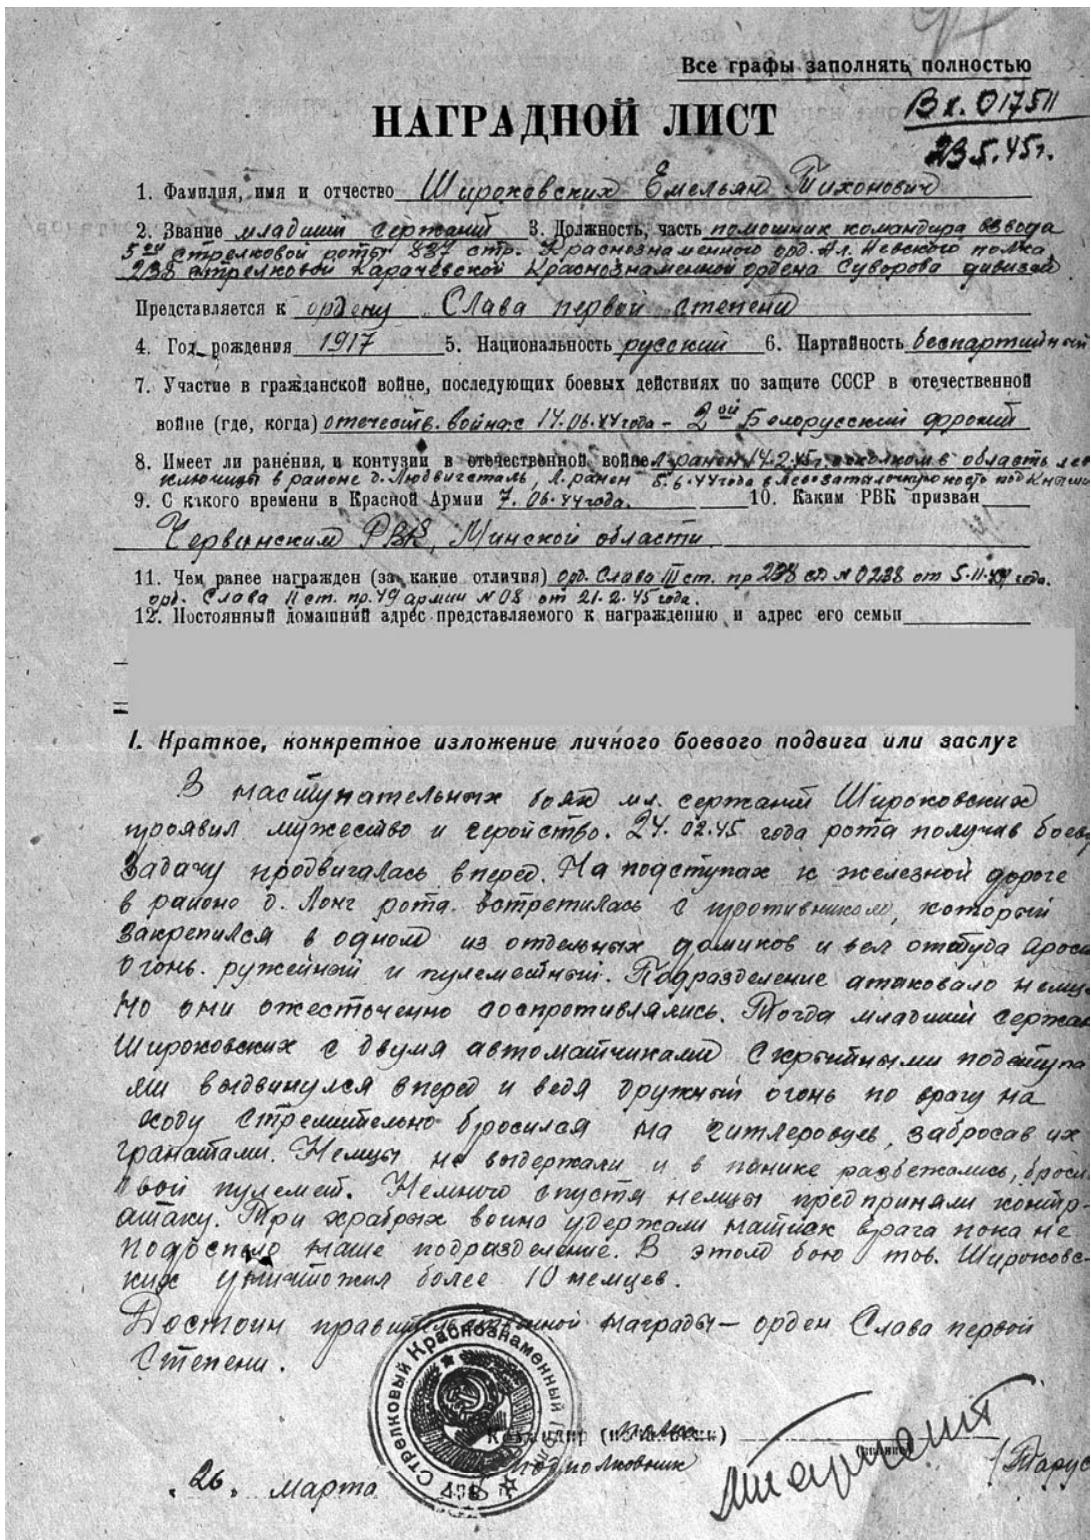 Все графы заполнять полностью
НАГРАДНОЙ ЛИСТ
Вх. 017511
23.5.45г.
1. Фамилия, имя и отчество Широковских Емельян Тихонович
2. Звание младший сержант 3. Должность, часть помошник командира взвода
5ой стрелковой роты 837 стр. Краснознаменного орд. Ал. Невского полка
238 стрелковой Карачевской Краснознаменной ордена Суворова дивизии
Представляется к ордену Слава первой степени
4. Год рождения 1917 5. Национальность русский 6. Партийность беспартийный
7. Участие в гражданской войне, последующих боевых действиях по защите СССР в отечественной
войне (где, когда) отечеств. война с 17.06.44 года - 2ой Белорусский фронт
8. Имеет ли ранения и контузии в отечественной войне ранен 14.2.45г. осколком в область лев
ключицы в районе д. Людвигсталь, ранен 5.6.44 года в под
9. С какого времени в Красной Армии 7.06.44 года. 10. Каким РВК призван
Червинским РВК, Минской области
11. Чем ранее награжден (за какие отличия) орд. Слава III ст. пр 238 сд №0238 от 5.11. года.
орд. Слава II ст. пр. 49 армии №08 от 21.2.45 года.
12. Постоянный домашний адрес представляемого к награждению и адрес его семьи
I. Краткое, конкретное изложение личного боевого подвига или заслуг
В наступательных боях мл. сержант Широковских
проявил мужество и геройство. 24.02.45 года рота получив боев
задачу продвигалась вперед. На подступах к железной дороге
в районе д. Лонг рота встретилась с противником, который
закрепился в одном из отдельных домиков и вел оттуда ярост
огонь ружейный и пулеметный. Подразделение атаковало немце
но они ожесточенно сопротивлялись. Тогда младший сержан
Широковских с двумя автоматчиками скрытными подступа
ми выдвинулся вперед и ведя дружный огонь по врагу на
ходу стремительно бросился на гитлеровцев, забросав их
гранатами. Немцы не выдержали и в панике разбежались, броси
свой пулемет. Немного спустя немцы предприняли контр-
атаку. Три храбрых воина удержали натиск врага пока не
подоспело наше подразделение. В этом бою тов. Широковс-
ких уничтожил более 10 немцев.
Достоин правительственной награды — орден Слава первой
степени.
Стрелковый Краснознаменный
Командир (начальник) полка
подполковник
"26" марта
(Тарус